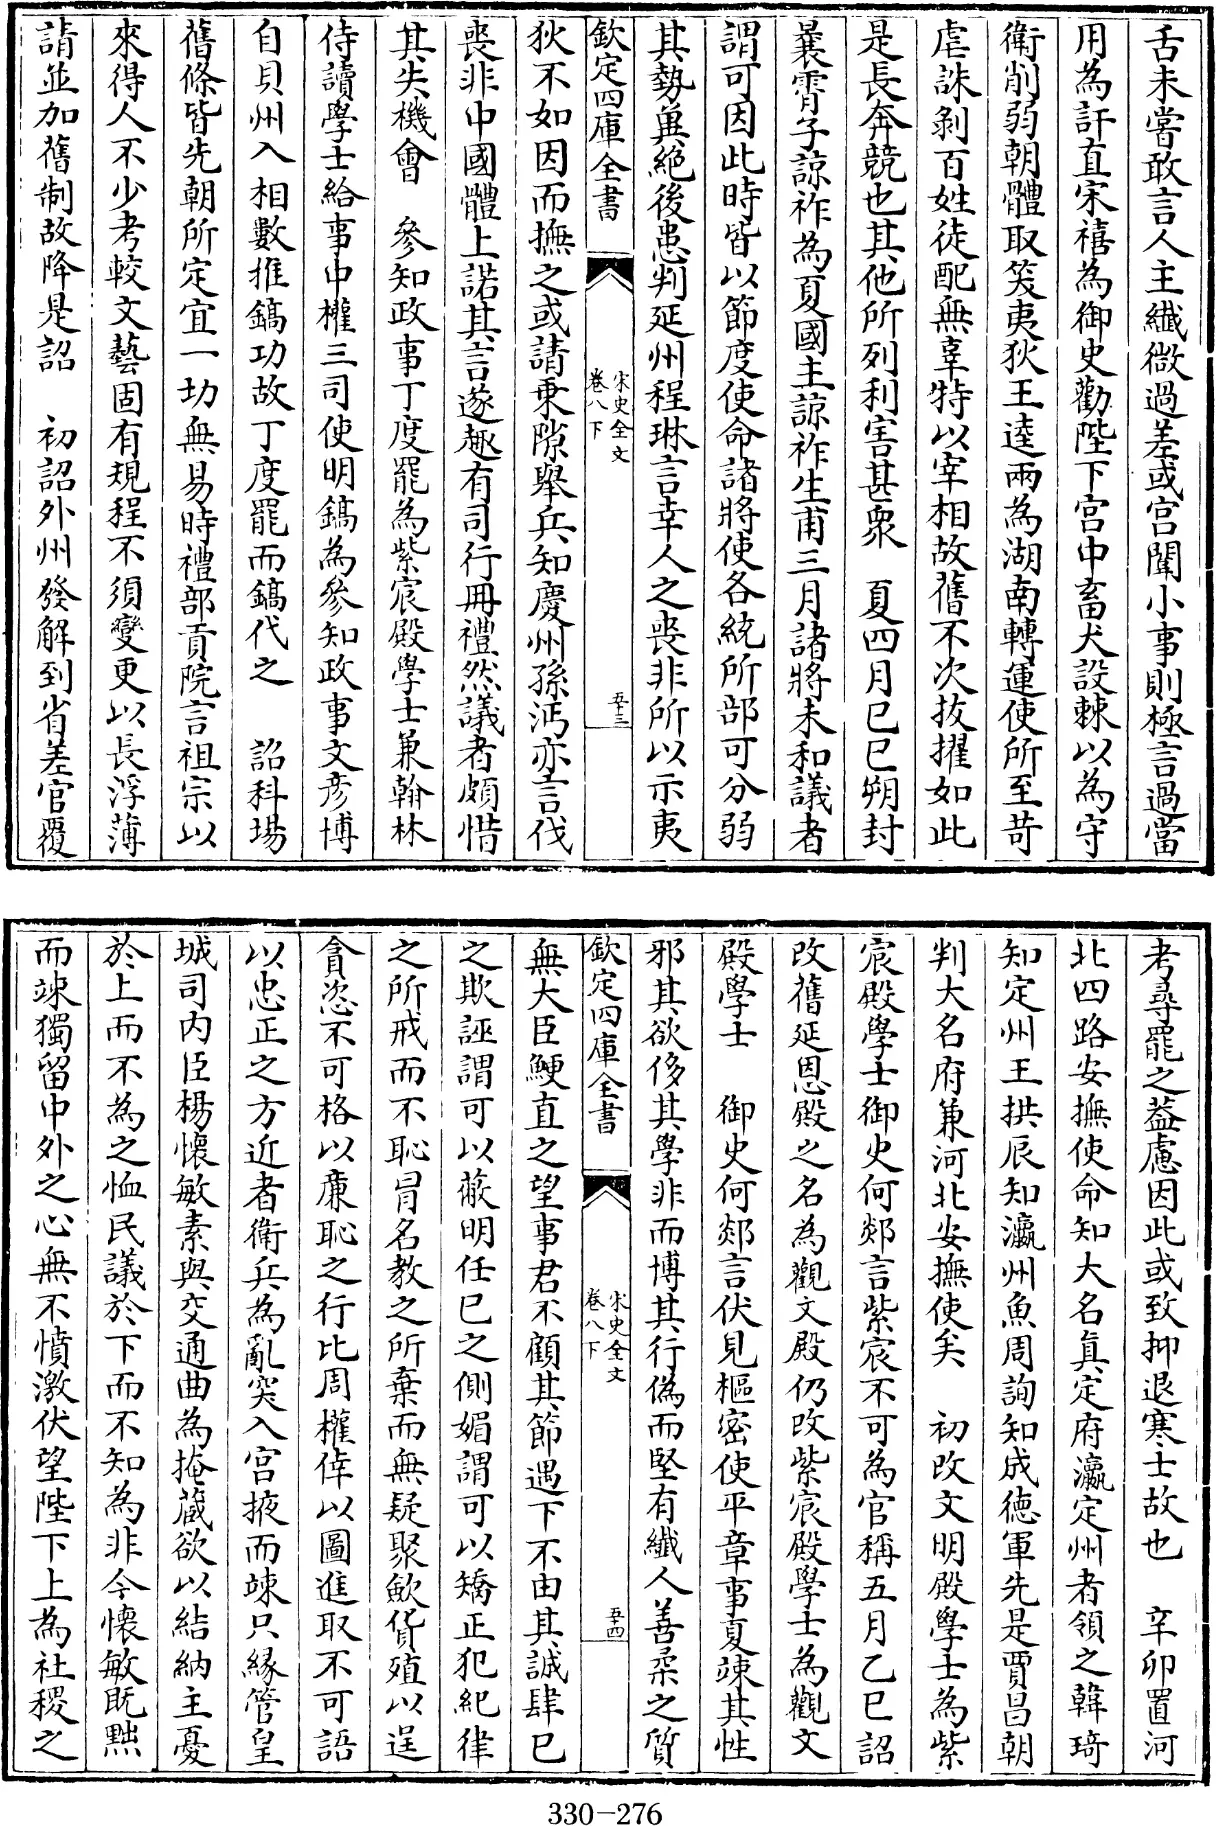 舌未嘗敢言人主纎微過差或宫闈小事則極言過當
用為訐直宋禧為御史勸陛下宫中畜犬設棘以為守
衛削弱朝體取笑夷狄王逵兩為湖南轉運使所至苛
虐誅剝百姓徒配無辜特以宰相故舊不次拔擢如此
是長奔競也其他所列利害甚衆　夏四月己巳朔封
曩霄子諒祚為夏國主諒祚生甫三月諸將未和議者
謂可因此時皆以節度使命諸將使各統所部可分弱
其勢兾絶後患判延州程琳言幸人之喪非所以示夷
欽定四庫全書
宋史全文
卷八下
五十三
狄不如因而撫之或請乗隙舉兵知慶州孫沔亦言伐
喪非中國體上諾其言遂趣有司行冊禮然議者頗惜
其失機會　參知政事丁度罷為紫宸殿學士兼翰林
侍讀學士給事中權三司使明鎬為參知政事文彦博
自貝州入相數推鎬功故丁度罷而鎬代之　詔科場
舊條皆先朝所定宜一切無易時禮部貢院言祖宗以
來得人不少考較文藝固有規程不須變更以長浮薄
請並加舊制故降是詔　初詔外州發解到省差官覆
考尋罷之葢慮因此或致抑退寒士故也　辛卯置河
北四路安撫使命知大名真定府瀛定州者領之韓琦
知定州王拱辰知瀛州魚周詢知成徳軍先是賈昌朝
判大名府兼河北安撫使矣　初改文明殿學士為紫
宸殿學士御史何郯言紫宸不可為官稱五月乙巳詔
改舊延恩殿之名為觀文殿仍改紫宸殿學士為觀文
殿學士　御史何郯言伏見樞密使平章事夏竦其性
邪其欲侈其學非而博其行偽而堅有纎人善柔之質
欽定四庫全書
宋史全文
卷八下
五十四
無大臣鯁直之望事君不顧其節遇下不由其誠肆已
之欺誣謂可以蔽明任已之側媚謂可以矯正犯紀律
之所戒而不恥冐名教之所棄而無疑聚歛貨殖以逞
貪恣不可格以亷恥之行比周權倖以圖進取不可語
以忠正之方近者衛兵為亂突入宫掖而竦只緣管皇
城司内臣楊懷敏素與交通曲為掩藏欲以結納主憂
於上而不為之恤民議於下而不知為非今懷敏既黜
而竦獨留中外之心無不憤激伏望陛下上為社稷之
330-276